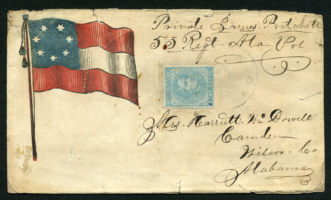 Private James Pritchett
53 Regt Ala Vol
Mrs Harriett McDowell
Camden
Wilcox Co
Alabama